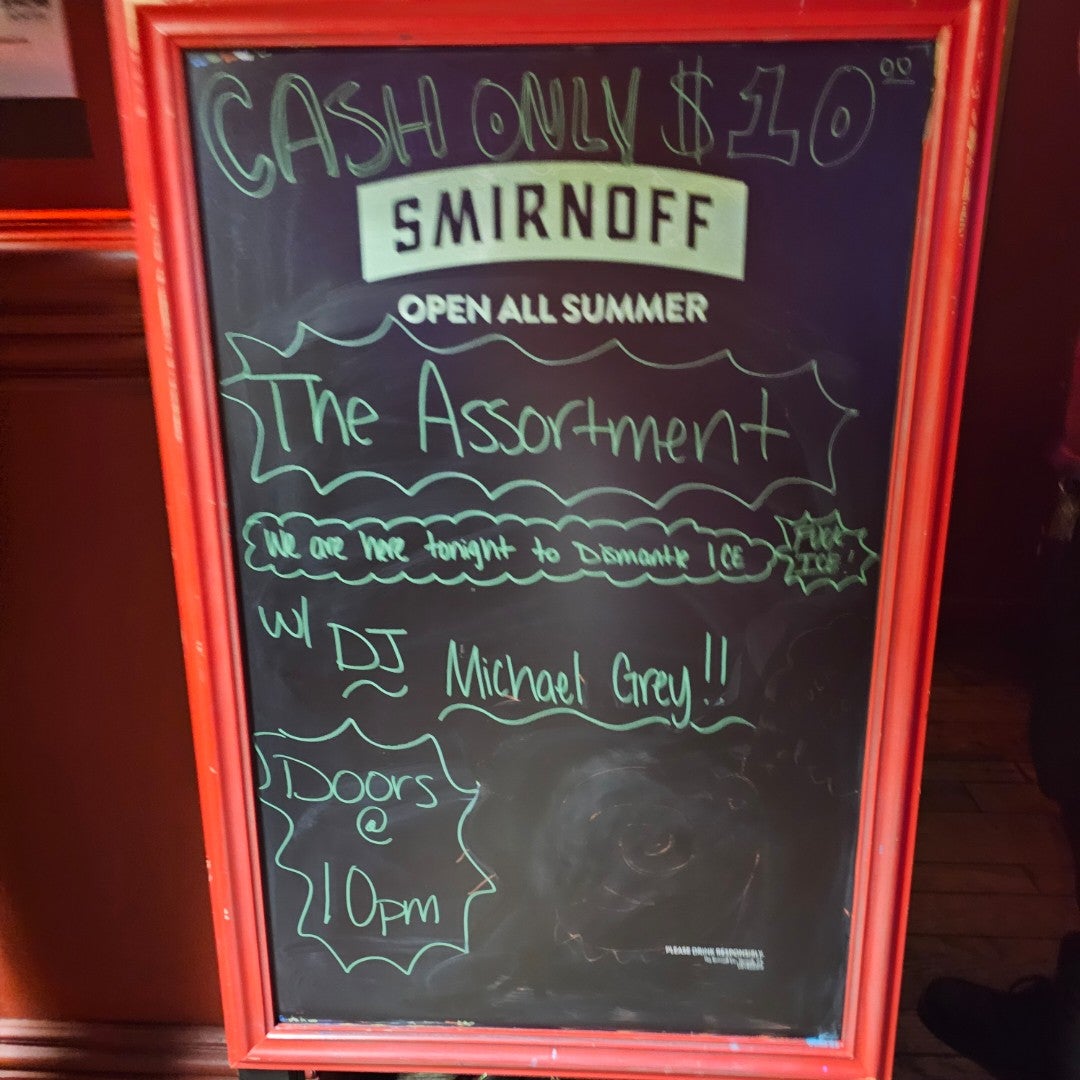 CASH ONLY $10.00
SMIRNOFF
OPEN ALL SUMMER
The Assortment
We are here tonight to Dismantle ICE
FUCK
ICE!
w/ DJ Michael Grey!!
Doors
@
10pm
PLEASE DRINK RESPONSIBLY.